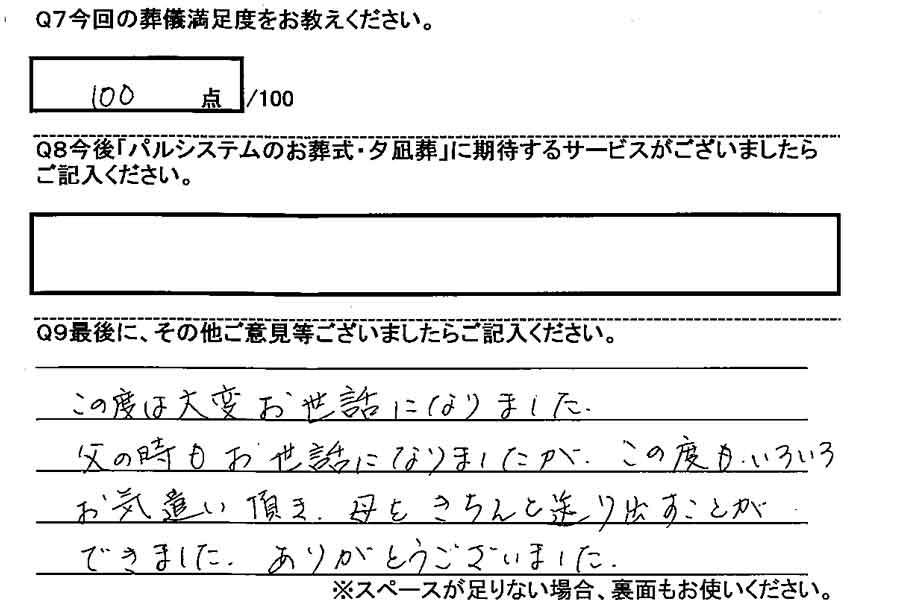 Q7今回の葬儀満足度をお教えください。
100 点 /100
Q8今後「パルシステムのお葬式・夕凪葬」に期待するサービスがございましたら
ご記入ください。
Q9最後に、その他ご意見等ございましたらご記入ください。
この度は大変お世話になりました.
父の時もお世話になりましたが、この度も、いろいろ
お気遣い頂き、母をきちんと送り出すことが
できました. ありがとうございました.
※スペースが足りない場合、裏面もお使いください。